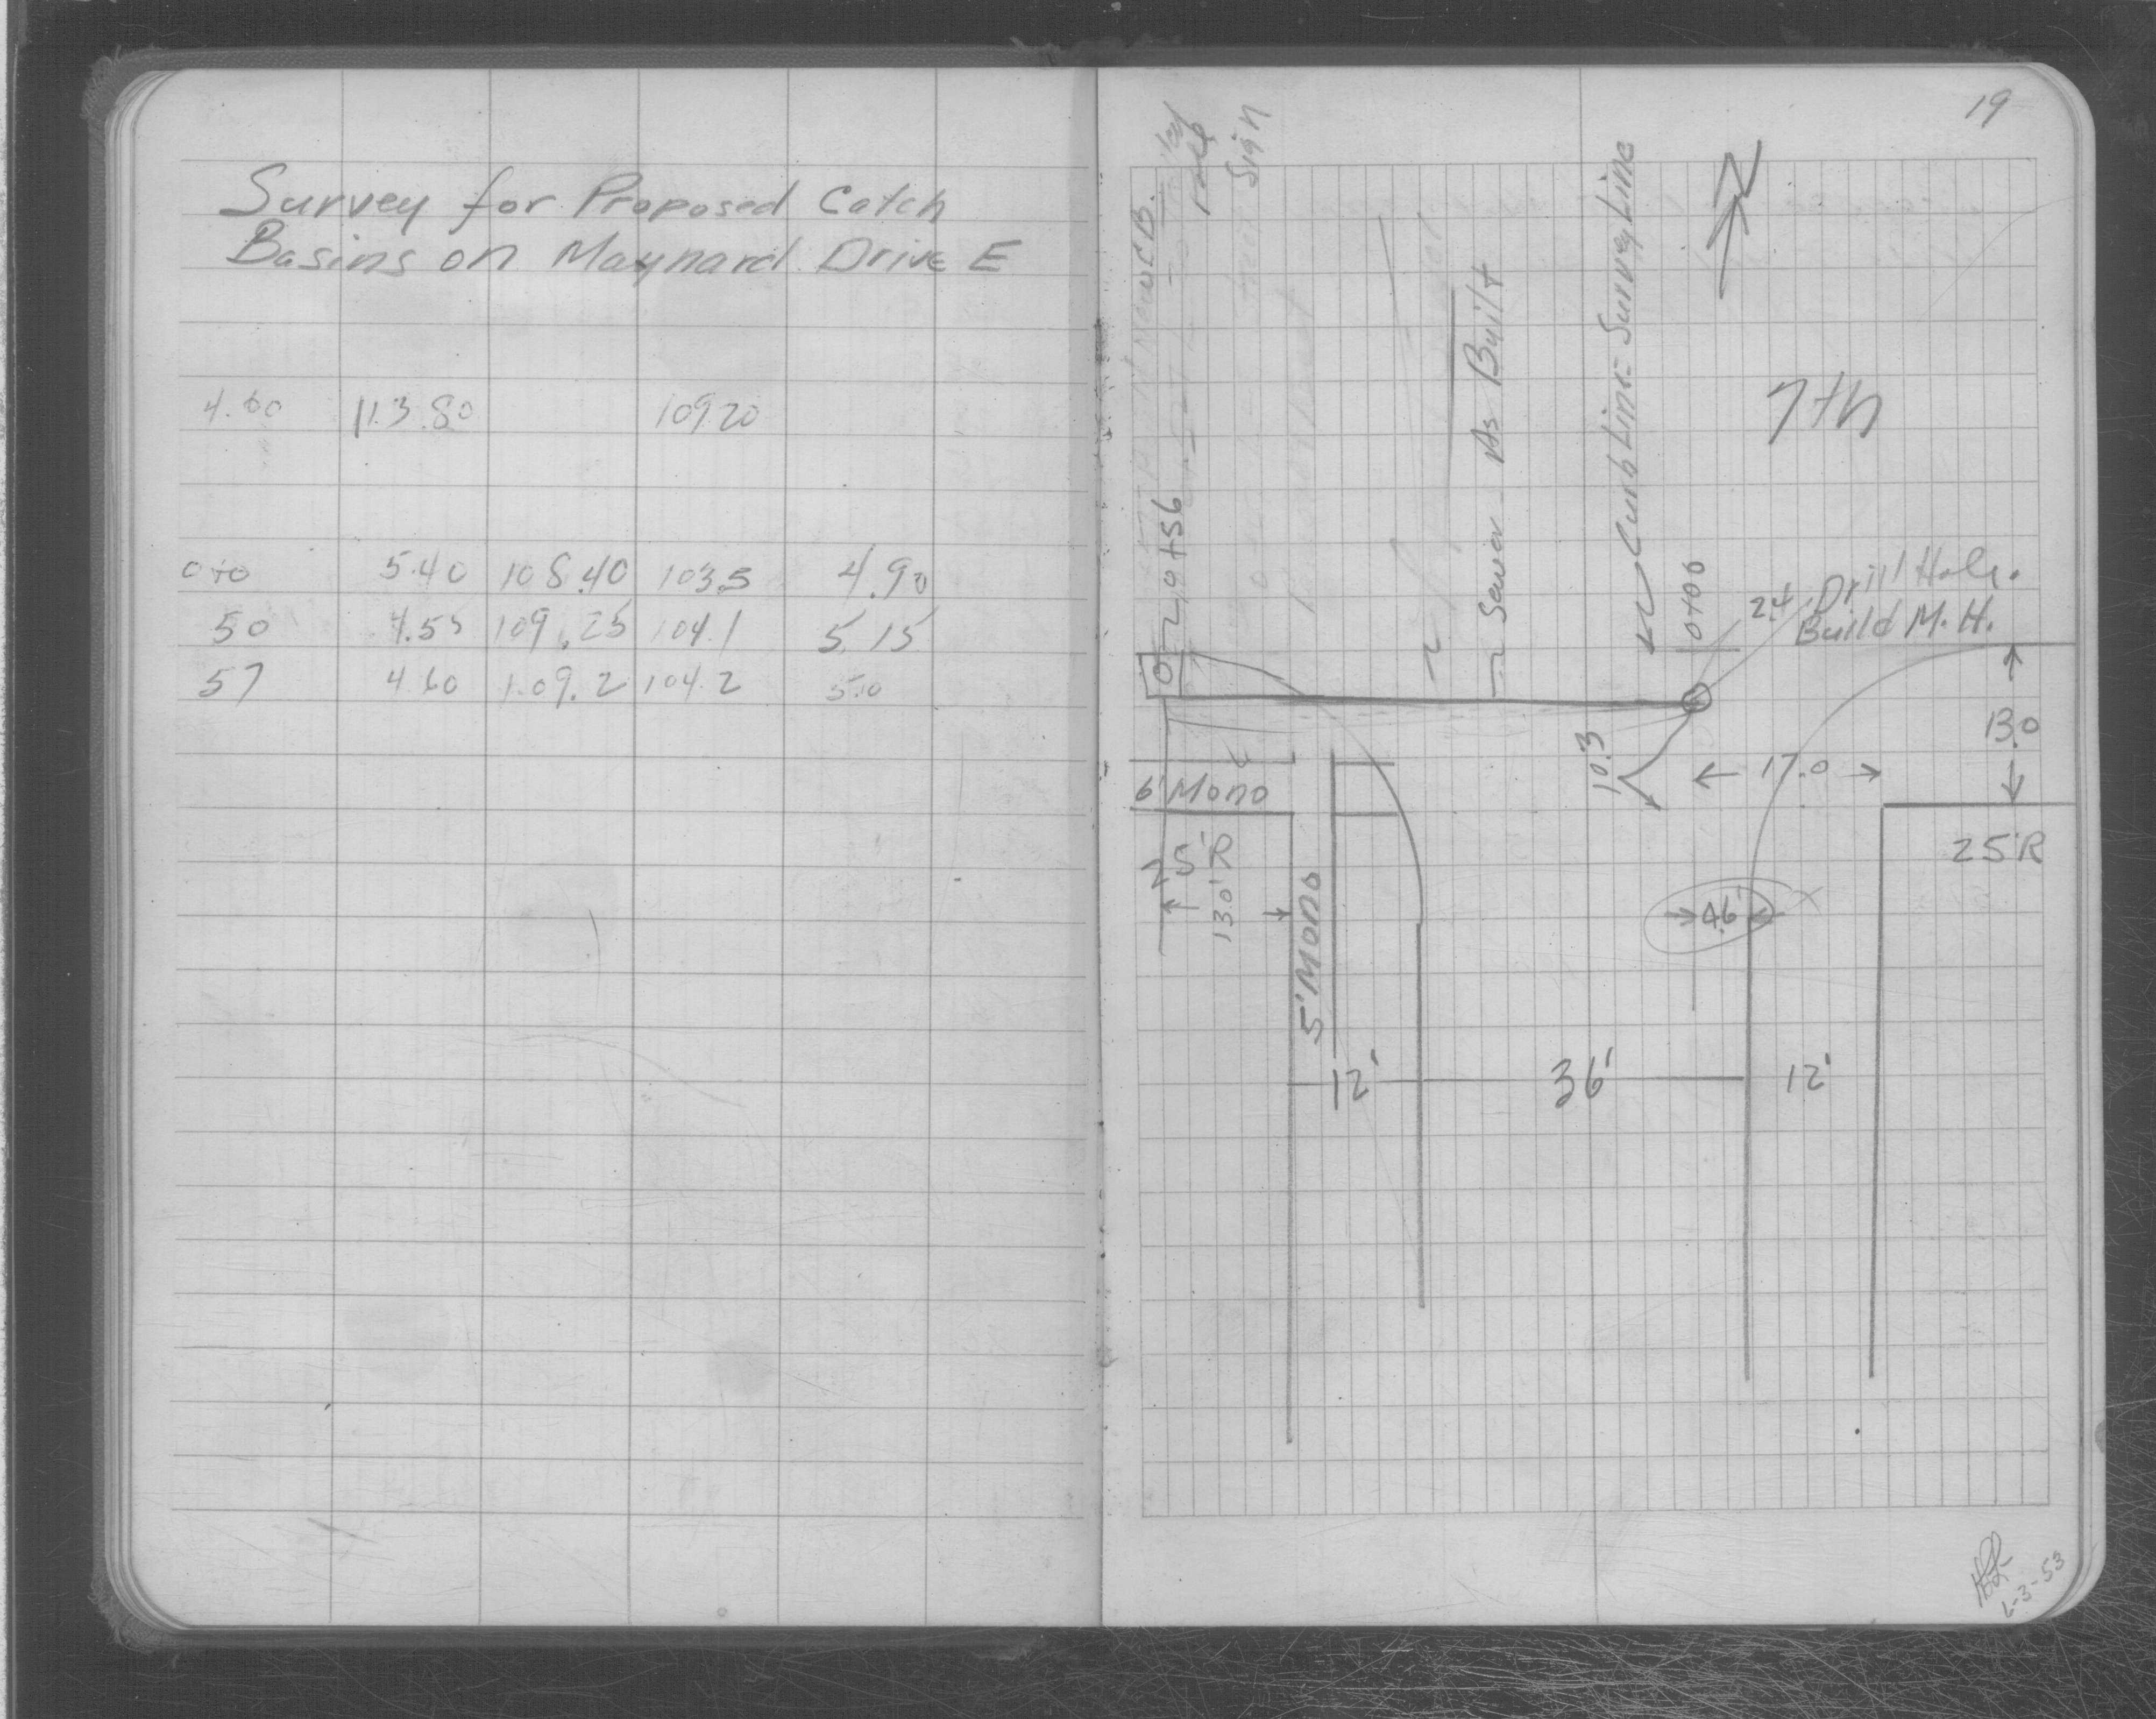 Survey for Proposed Catch
Basins on Maynard Drive E
4.60 113.80 109.20
0+0 5.40 108.40 103.5 4.90
50 4.55 109.25 104.1 5.15
57 4.60 109.2 104.2 5.0
19
New C.B.
Pole
Sign
Sewer As Built
Curb Line - Survey Line
N
7th
0+00
2.4
Drill Hole.
Build M.H.
13.0
10.3
17.0
6' Mono
25'R
13.0'
5' Mono
25'R
4.6
12' 36' 12'
6-3-53